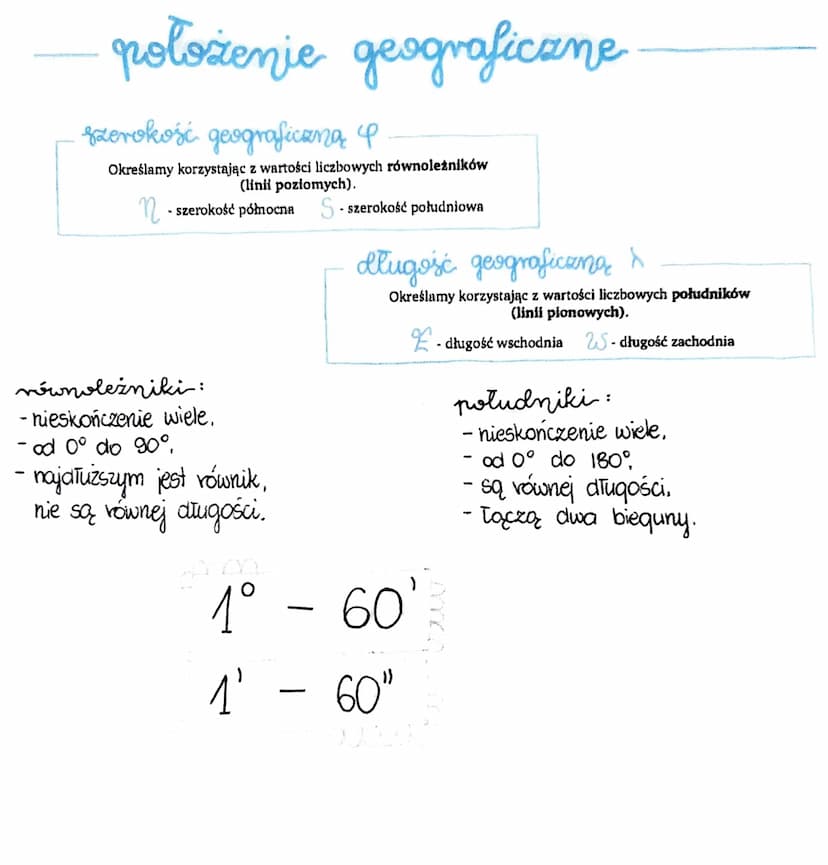 położenie geograficzne
szerokość geograficzną φ
Określamy korzystając z wartości liczbowych równoleżników
(linii poziomych).
N - szerokość północna S - szerokość południowa
długość geograficzną λ
Określamy korzystając z wartości liczbowych południków
(linii pionowych).
E - długość wschodnia W - długość zachodnia
równoleżniki:
- nieskończenie wiele,
- od 0° do 90°,
- najdłuższym jest równik,
nie są równej długości.
południki:
- nieskończenie wiele,
- od 0° do 180°,
- są równej długości,
- łączą dwa bieguny.
1° - 60'
1' - 60"